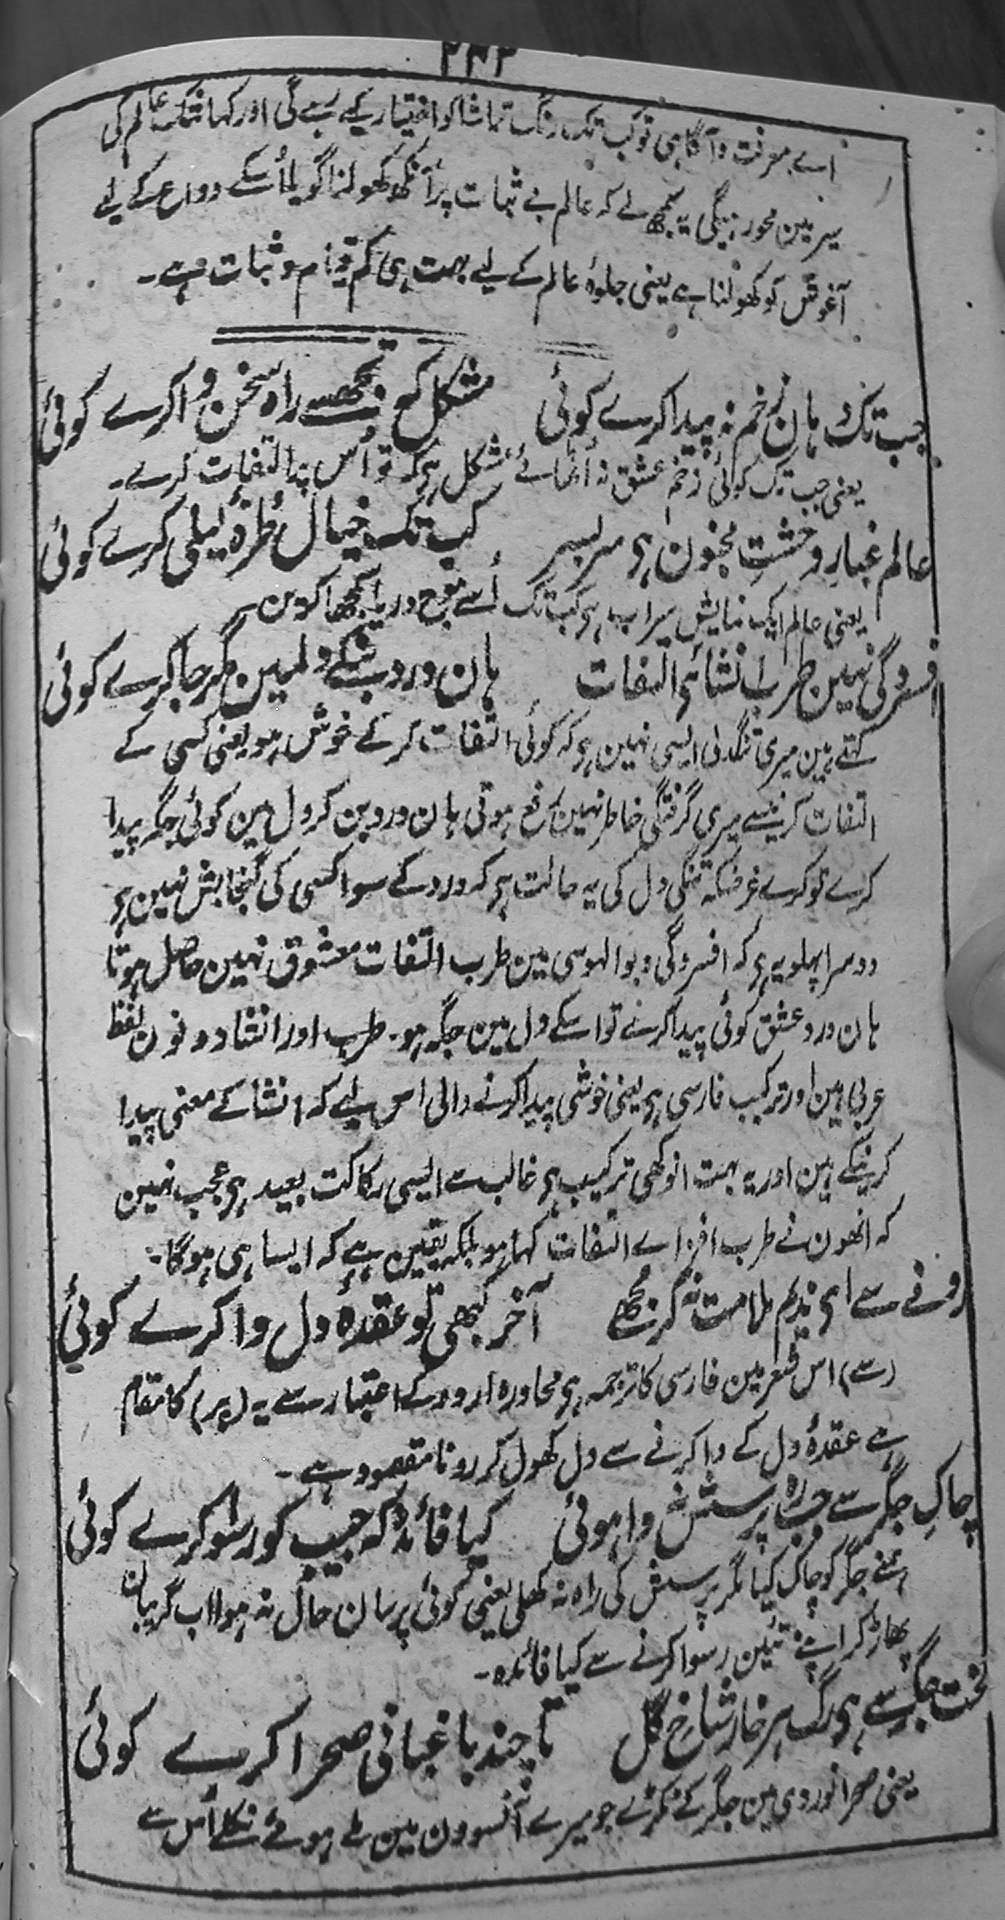 ۲۴۳
اے معرفت و آگاہی تو کب تک رنگ تماشا کو اختیار کیے رہے گی اور کہانتک عالم کی
سیر مین محو رہیگی یہ سمجھ لے کہ عالم بے ثبات پر آنکھ کھولنا گویا اُسکے وداع کے لیے
آغوش کو کھولنا ہے یعنی جلوۂ عالم کے لیے بہت ہی کم قیام و ثبات ہے۔
جب تک دہان زخم نہ پیدا کرے کوئی مشکل کہ تجھسے راہ سخن وا کرے کوئی
یعنی جب تک کوئی زخم عشق نہ اُٹھائے مشکل ہی کہ تو اُس پہ التفات کرے۔
عالم غبارِ وحشتِ مجنون ہی سر بسر کب تک خیال طُرۂ لیلی کرے کوئی
یعنی عالم ایک نمایش سراب ہی کب تک اُسے موج دریا سمجھا کرون
افسردگی نہین طرب انشاے التفات ہان درد بنکے دلمین مگر جا کرے کوئی
کہتے ہین میری تنگدلی ایسی نہین ہی کہ کوئی التفات کرے خوش ہو یعنی کسی کے
التفات کرنیسے میری گرفتگی خاطر نہین رفع ہوتی ہان درد بن کر دل مین کوئی جگہ پیدا
کرے تو کرے غرضکہ تنگی دل کی یہ حالت ہی کہ درد کے سوا کسی کی گنجایش نہین ہی
دوسرا پہلو یہ ہی کہ افسردگی و بوالہوسی مین طرب التفات معشوق نہین حاصل ہوتا
ہان درد عشق کوئی پیدا کرے تو اسکے دل مین جگہ ہو۔ طرب اور انشا دونون لفظ
عربی ہین اور ترکیب فارسی ہی یعنی خوشی پیدا کرنے والی اس لیے کہ انشا کے معنی پیدا
کرنیکے ہین اور یہ بہت انوکھی ترکیب ہی غالب سے ایسی رکاکت بعید ہی عجب نہین
کہ انھون نے طرب افزاے التفات کہا ہو بلکہ یقین ہے کہ ایسا ہی ہوگا۔
رونے سے ای ندیم ملامت نہ کر مجھے آخر کبھی تو عقدۂ دل وا کرے کوئی
(سے) اس شعر مین فارسی کا ترجمہ ہی محاورہ اردو کے اعتبار سے یہ (پر) کا مقام
ہے عقدۂ دل کے وا کرنے سے دل کھول کر رونا مقصود ہے۔
چاکِ جگر سے جب رہ پرسش نہ وا ہوئی کیا فائدہ کہ جیب کو رسوا کرے کوئی
ہمنے جگر کو چاک کیا مگر پرسش کی راہ نہ کھلی یعنی کوئی پرسان حال نہ ہوا اب گریبان
پھاڑ کر اپنے تئین رسوا کرنے سے کیا فائدہ۔
لخت جگر سے ہی رگ ہر خار شاخ گل تا چند باغبانی صحرا کرے کوئی
یعنی صحرا نوردی مین جگر کے ٹکڑے جو میرے آنسوون مین ملے ہوئے نکلے اُس سے